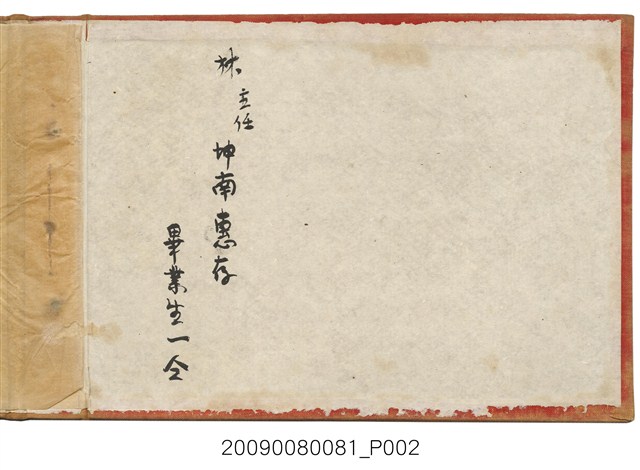 林主任坤南惠存
畢業生一仝
20090080081_P002